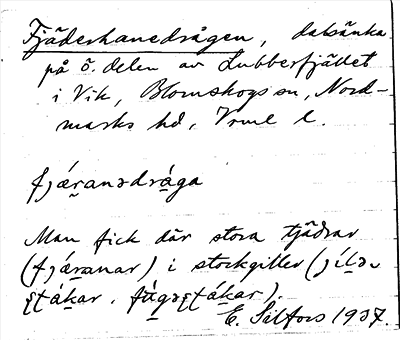 Fjäderhanedrågen, dalsänka
på ö. delen av Lubberfjället
i Vik, Blomskogs sn, Nord-
marks hd, Vrml l.
fjæranədråga
Man fick där stora tjädrar
(fjäranar) i stockgiller
E. Salfors 1937.